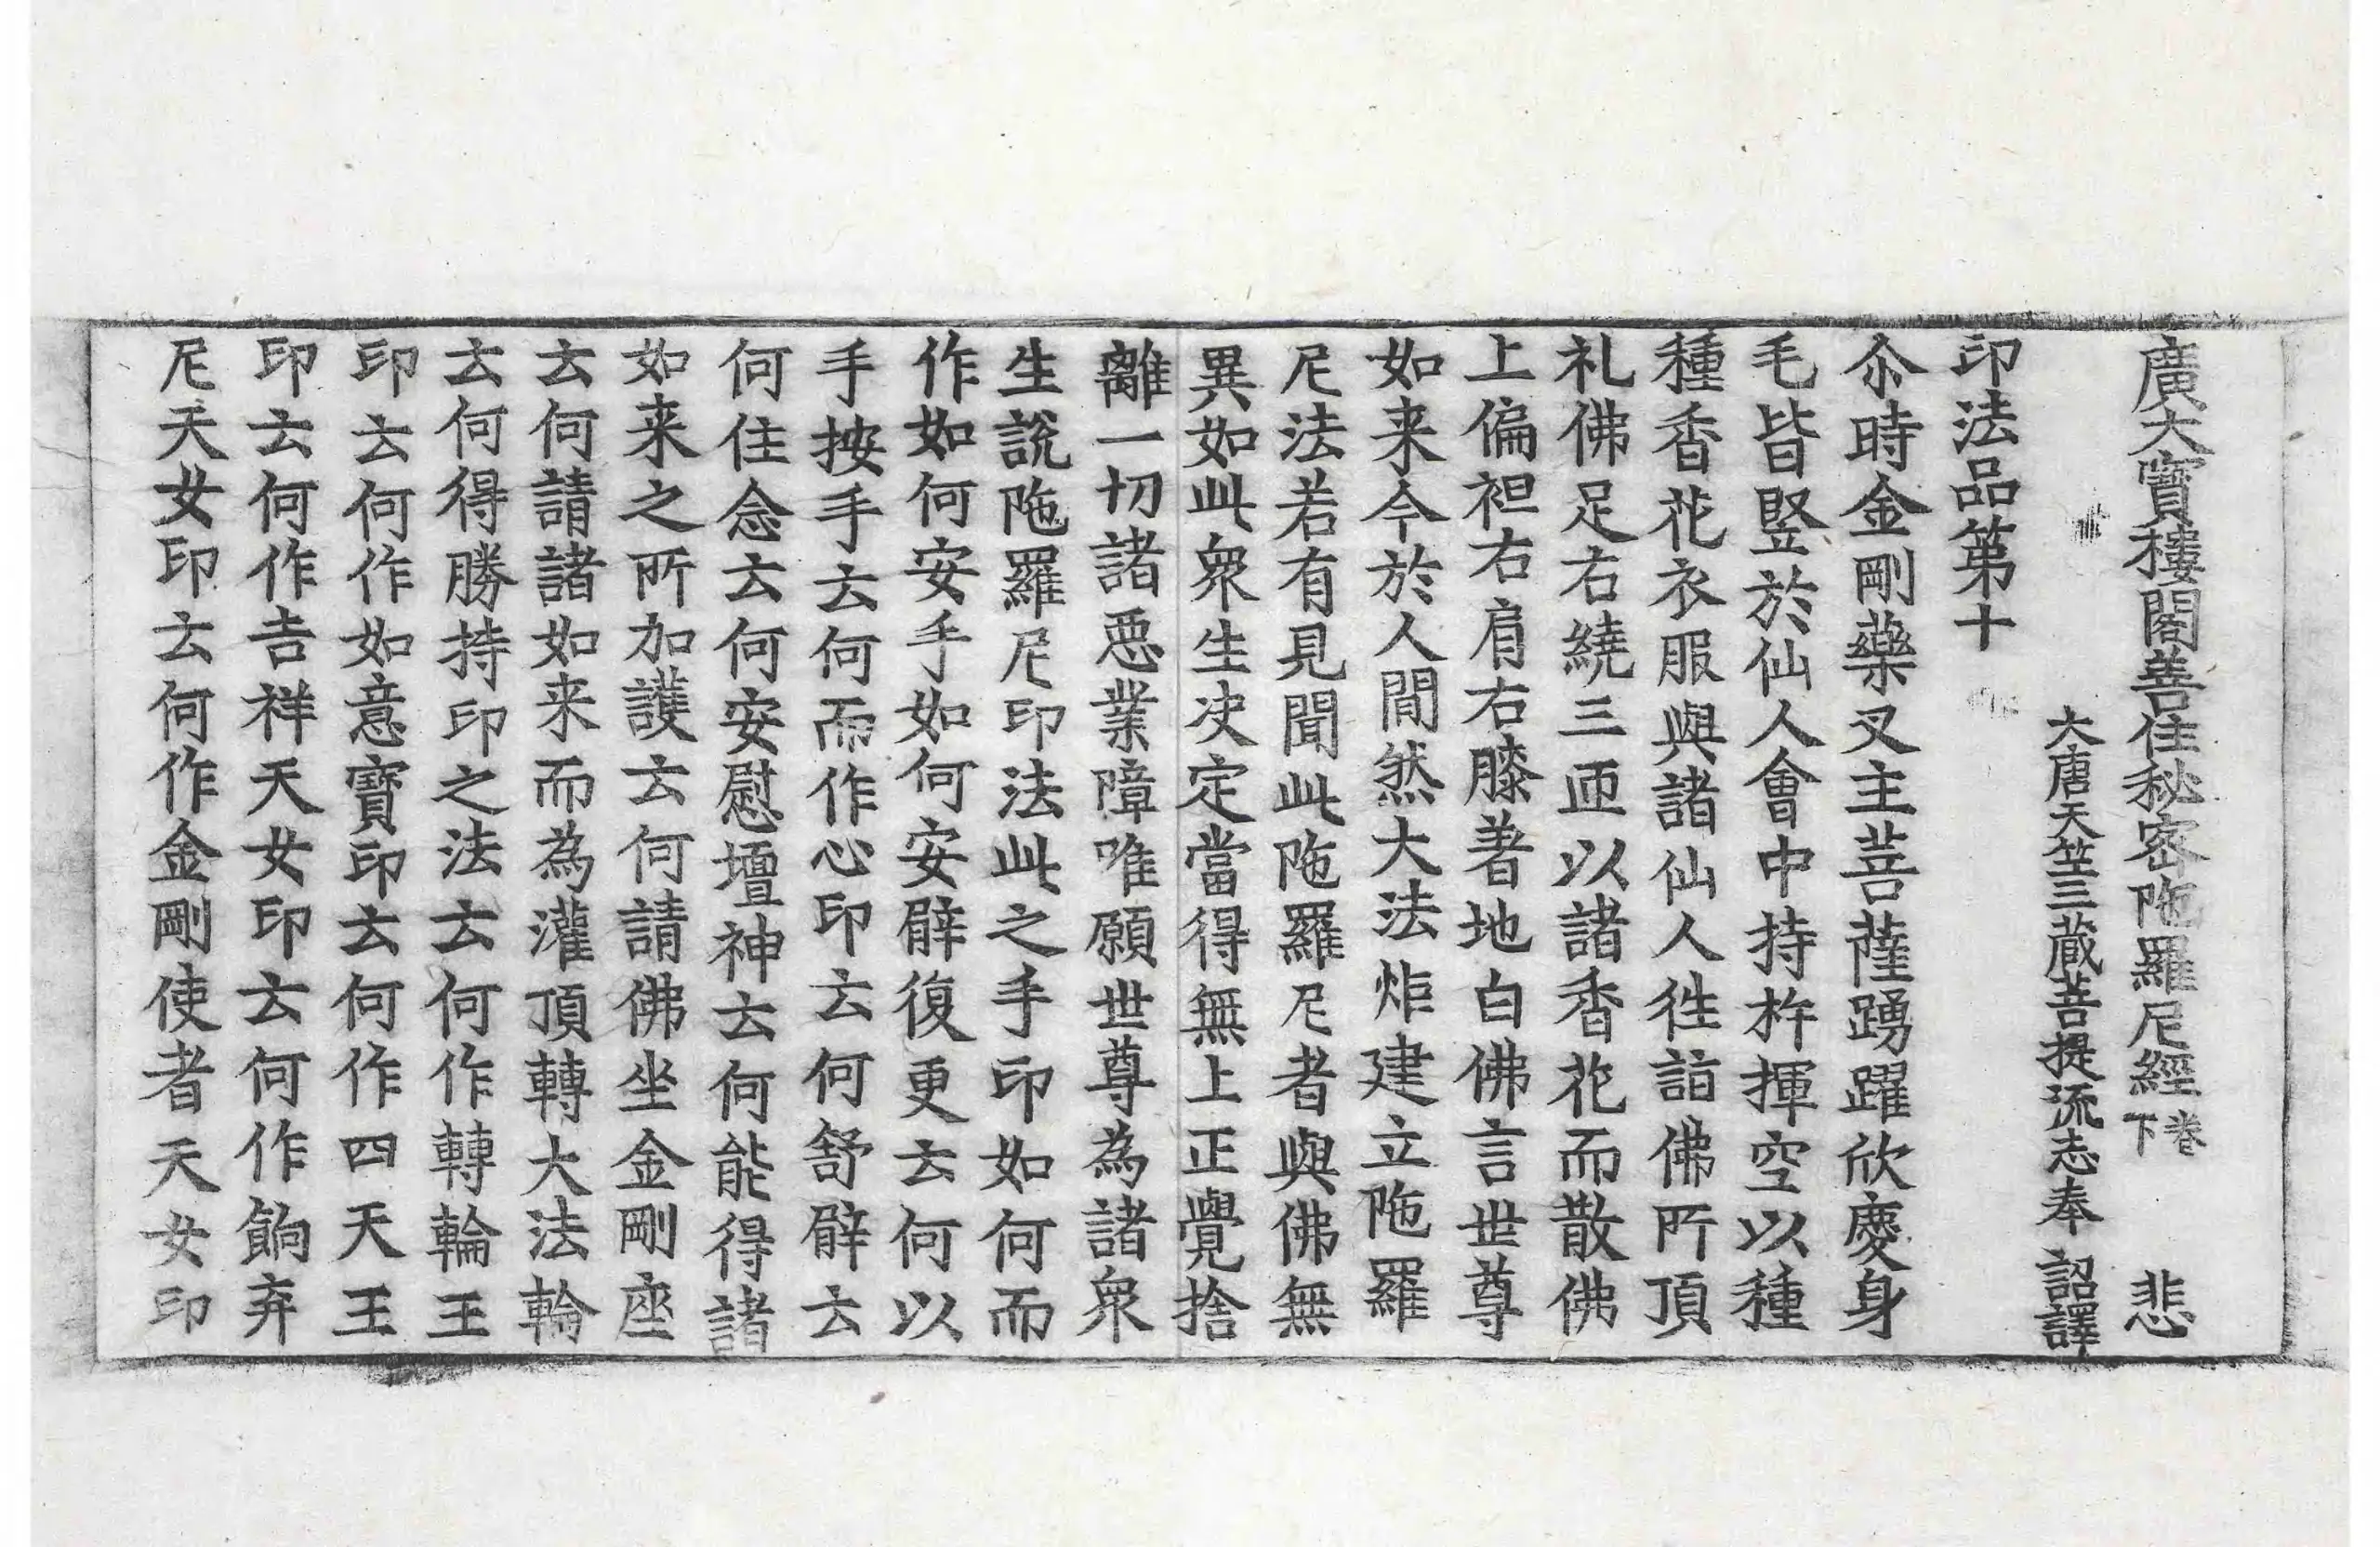 廣大寳樓閣善住秘密陁羅尼經卷下 悲
大唐天笁三蔵菩提流志奉 詔譯
印法品第十
尒時金剛藥叉主菩薩踴躍欣慶身
毛皆竪於仙人會中持杵揮空以種
種香花衣服與諸仙人徃詣佛所頂
礼佛足右繞三匝以諸香花而散佛
上偏袒右肩右膝著地白佛言世尊
如来今於人間然大法炬建立陁羅
尼法若有見聞此陁羅尼者與佛無
異如此衆生决定當得無上正覺捨
離一切諸悪業障唯願世尊為諸衆
生說陁羅尼印法此之手印如何而
作如何安手如何安臂復更云何以
手按手云何而作心印云何舒臂云
何住念云何安慰壇神云何能得諸
如来之所加護云何請佛坐金剛座
云何請諸如来而為灌頂轉大法輪
云何得勝持印之法云何作轉輪王
印云何作如意寳印云何作四天王
印云何作吉祥天女印云何作餉弃
尼天女印云何作金剛使者天女印